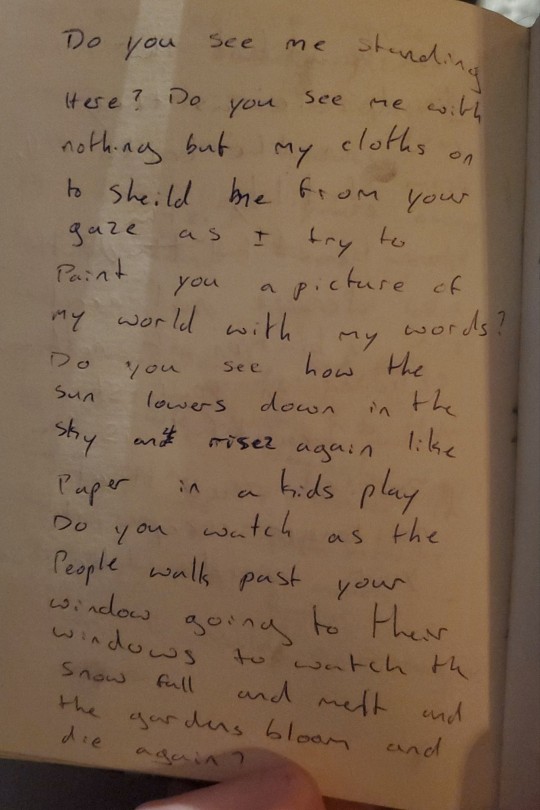 Do you see me standing
Here? Do you see me with
nothing but my cloths on
to sheild me from your
gaze as I try to
Paint you a picture of
my world with my words?
Do you see how the
sun lowers down in the
sky and rises again like
Paper in a kids play
Do you watch as the
People walk past your
window going to their
windows to watch th
snow fall and melt and
the gardens bloom and
die again?